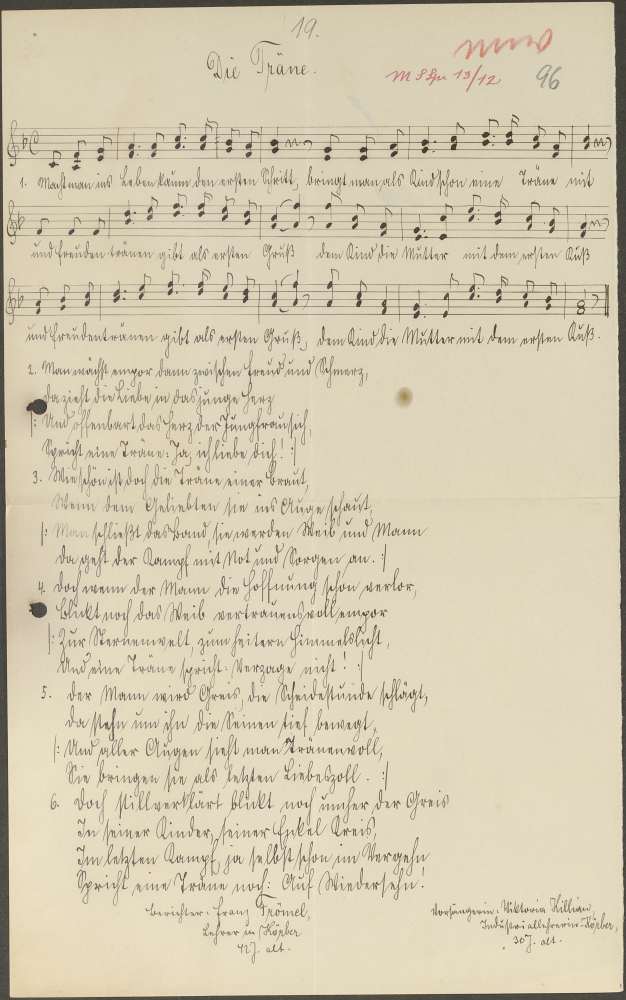 19.
Die Träne.
13/12
96
1. Macht man ins Leben kaum den ersten Schritt, bringt man als Kind schon eine Träne mit
und Freudentränen gibt als ersten Gruß dem Kind die Mutter mit dem ersten Kuß
und Freudentränen gibt als ersten Gruß, dem Kind die Mutter mit dem ersten Kuß.
2. Man wächst empor dann zwischen Freud und Schmerz,
da zieht die Liebe in das junge Herz
|: Und offenbart das Herz der Jungfrau sich,
Spricht eine Träne: Ja, ich liebe dich! :|
3. Wie schön ist doch die Träne einer Braut,
Wenn dem Geliebten sie ins Auge schaut,
|: Man schließt das Band, sie werden Weib und Mann
da geht der Kampf mit Not und Sorgen an. :|
4. Doch wenn der Mann die Hoffnung schon verlor,
Blickt noch das Weib vertrauensvoll empor
|: Zur Sternenwelt, zum heitern Himmelslicht,
Und eine Träne spricht: Verzage nicht! :|
5. Der Mann wird Greis, die Scheidestunde schlägt,
da stehn um ihn die Seinen tief bewegt,
|: Und aller Augen sieht man tränenvoll,
Sie bringen sie als letzten Liebeszoll. :|
6. Doch still verklärt blickt noch umher der Greis
In seiner Kinder, seiner Enkel Kreis,
Im letzten Kampf, ja selbst schon im Vergehn
Spricht eine Träne noch: Auf Wiedersehn!
Berichter: Franz Frömel,
Lehrer in
42 J. alt.
Vorsängerin: Viktoria Killian,
Industriallehrerin
30 J. alt.